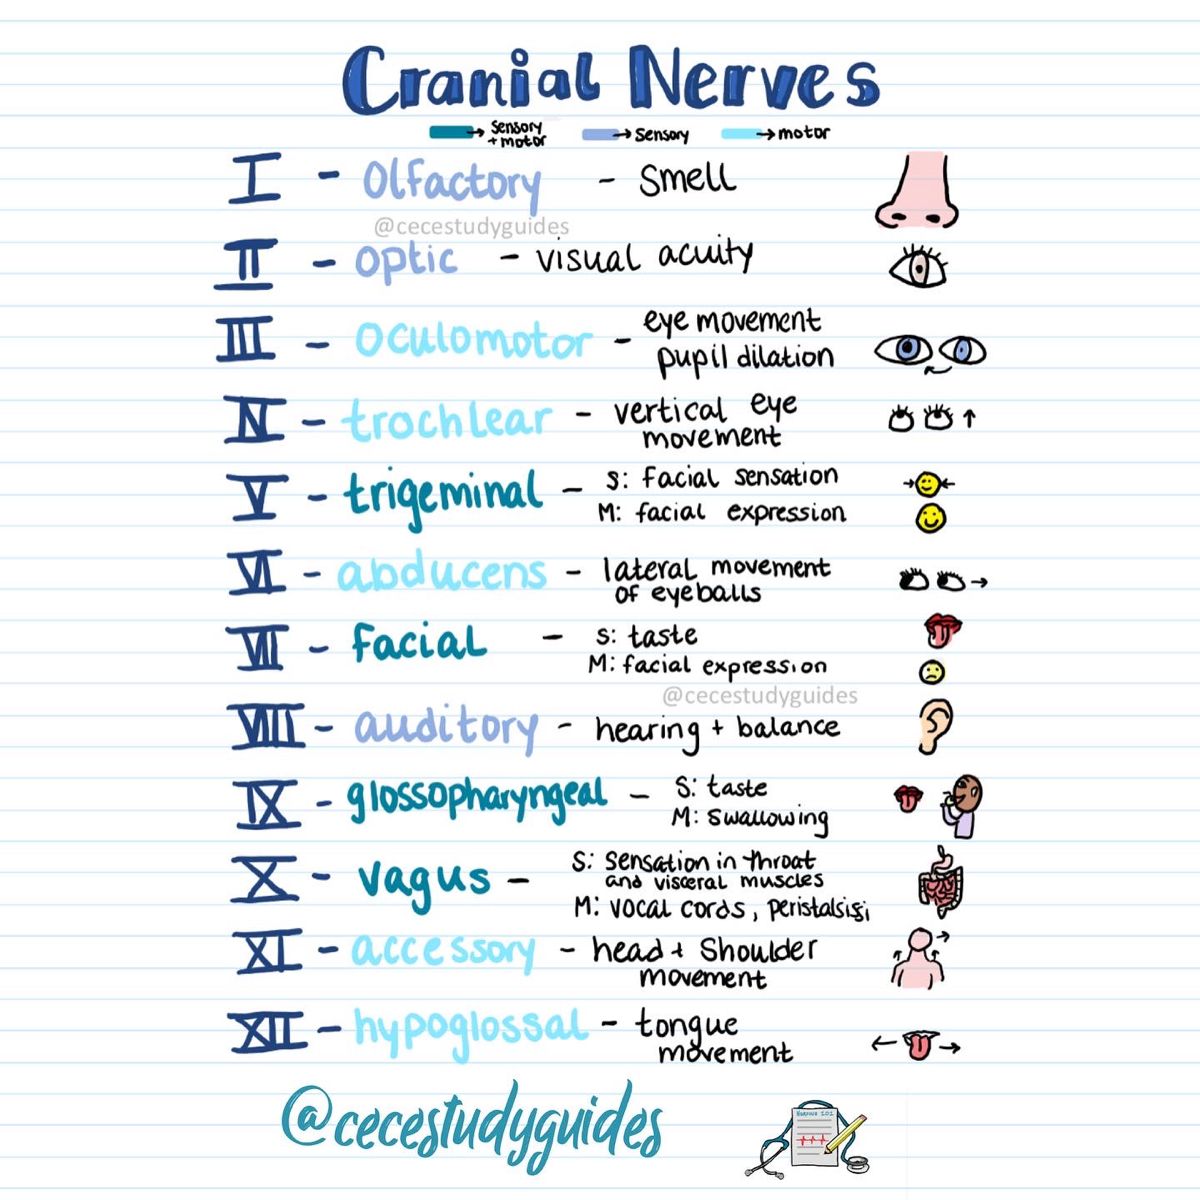 Cranial Nerves
sensory + motor
sensory
motor
I - Olfactory - smell
@cecestudyguides
II - optic - visual acuity
III - oculomotor - eye movement
pupil dilation
IV - trochlear - vertical eye
movement
V - trigeminal - S: facial sensation
M: facial expression
VI - abducens - lateral movement
of eyeballs
VII - facial - S: taste
M: facial expression
@cecestudyguides
VIII - auditory - hearing + balance
IX - glossopharyngeal - S: taste
M: swallowing
X - vagus - S: sensation in throat
and visceral muscles
M: vocal cords, peristalsisi
XI - accessory - head + shoulder
movement
XII - hypoglossal - tongue
movement
@cecestudyguides